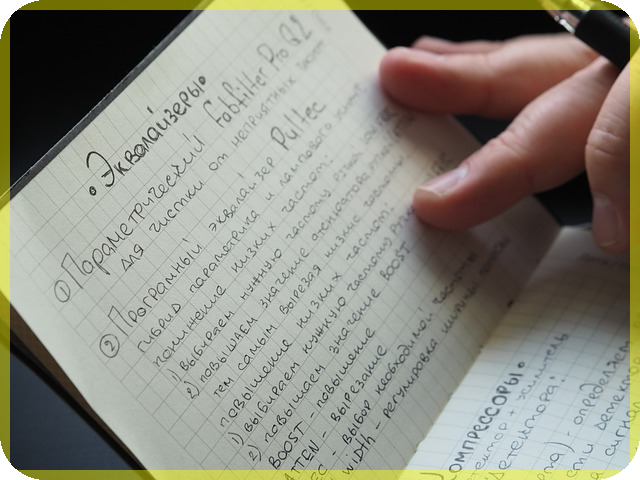 • Эквалайзеры•
① Параметрический Fabfilter Pro Q2
для чистки от неприятных частот
② Програмный эквалайзер Pultec
гибрид параметрика и лампового
понижение низких частот:
1) выбираем нужную частоту ручкой
2) повышаем значение
тем самым вырезая низкие частоты
повышение низких частот:
1) выбираем нужную частоту
2) повышаем значение BOOST
BOOST - повышение
ATTEN - вырезание
- выбор необходимой частоты
width - регулировка ширины
КОМПРЕССОРЫ•
детектор + усилитель
детектора:
- определяем
сти детектор
сигнал